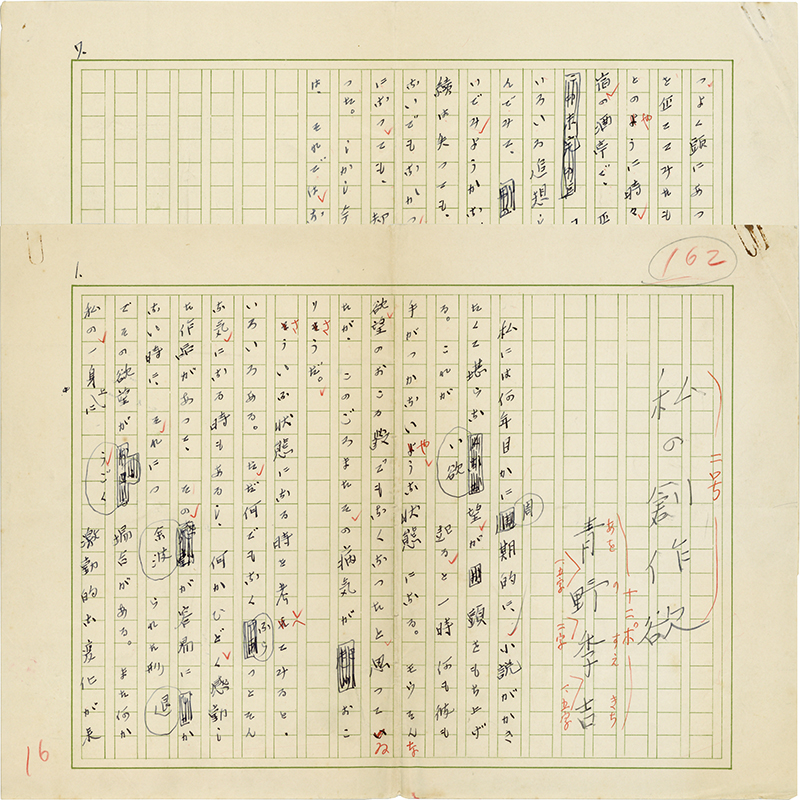 7.
つよく頭にあつ
と企ててみたも
とのように時々
宿の酒亭で、
いろいろ追想し
んでみて、
いでみようかな
績は失つても、
ないでもなかつ
になつても、却
つた。しかし今
は、それではな
1.
162
二号
私の創作欲
十二ポ
あを の すえ きち
青野季吉
私には何年目かに周期的に、小説がかき
たくて堪らない欲望が頭をもち上げ
る。これが起ると一時何も彼も
手がつかないやうな状態になる。もうそんな
欲望のおこる歳でもなくなつたと思つてゐ
たが、このごろまたその病気がおこ
りさうだ。
さういふ状態になる時と考へてみると、
いろいろある。ただ何でもなくふらつとそん
な気になる時もあるし、何かひどく感動し
た作品があつて、その
ない時に、それにつ
でその欲望がうごく場合がある。また何か
私の一身上に激動的な変化が来
16